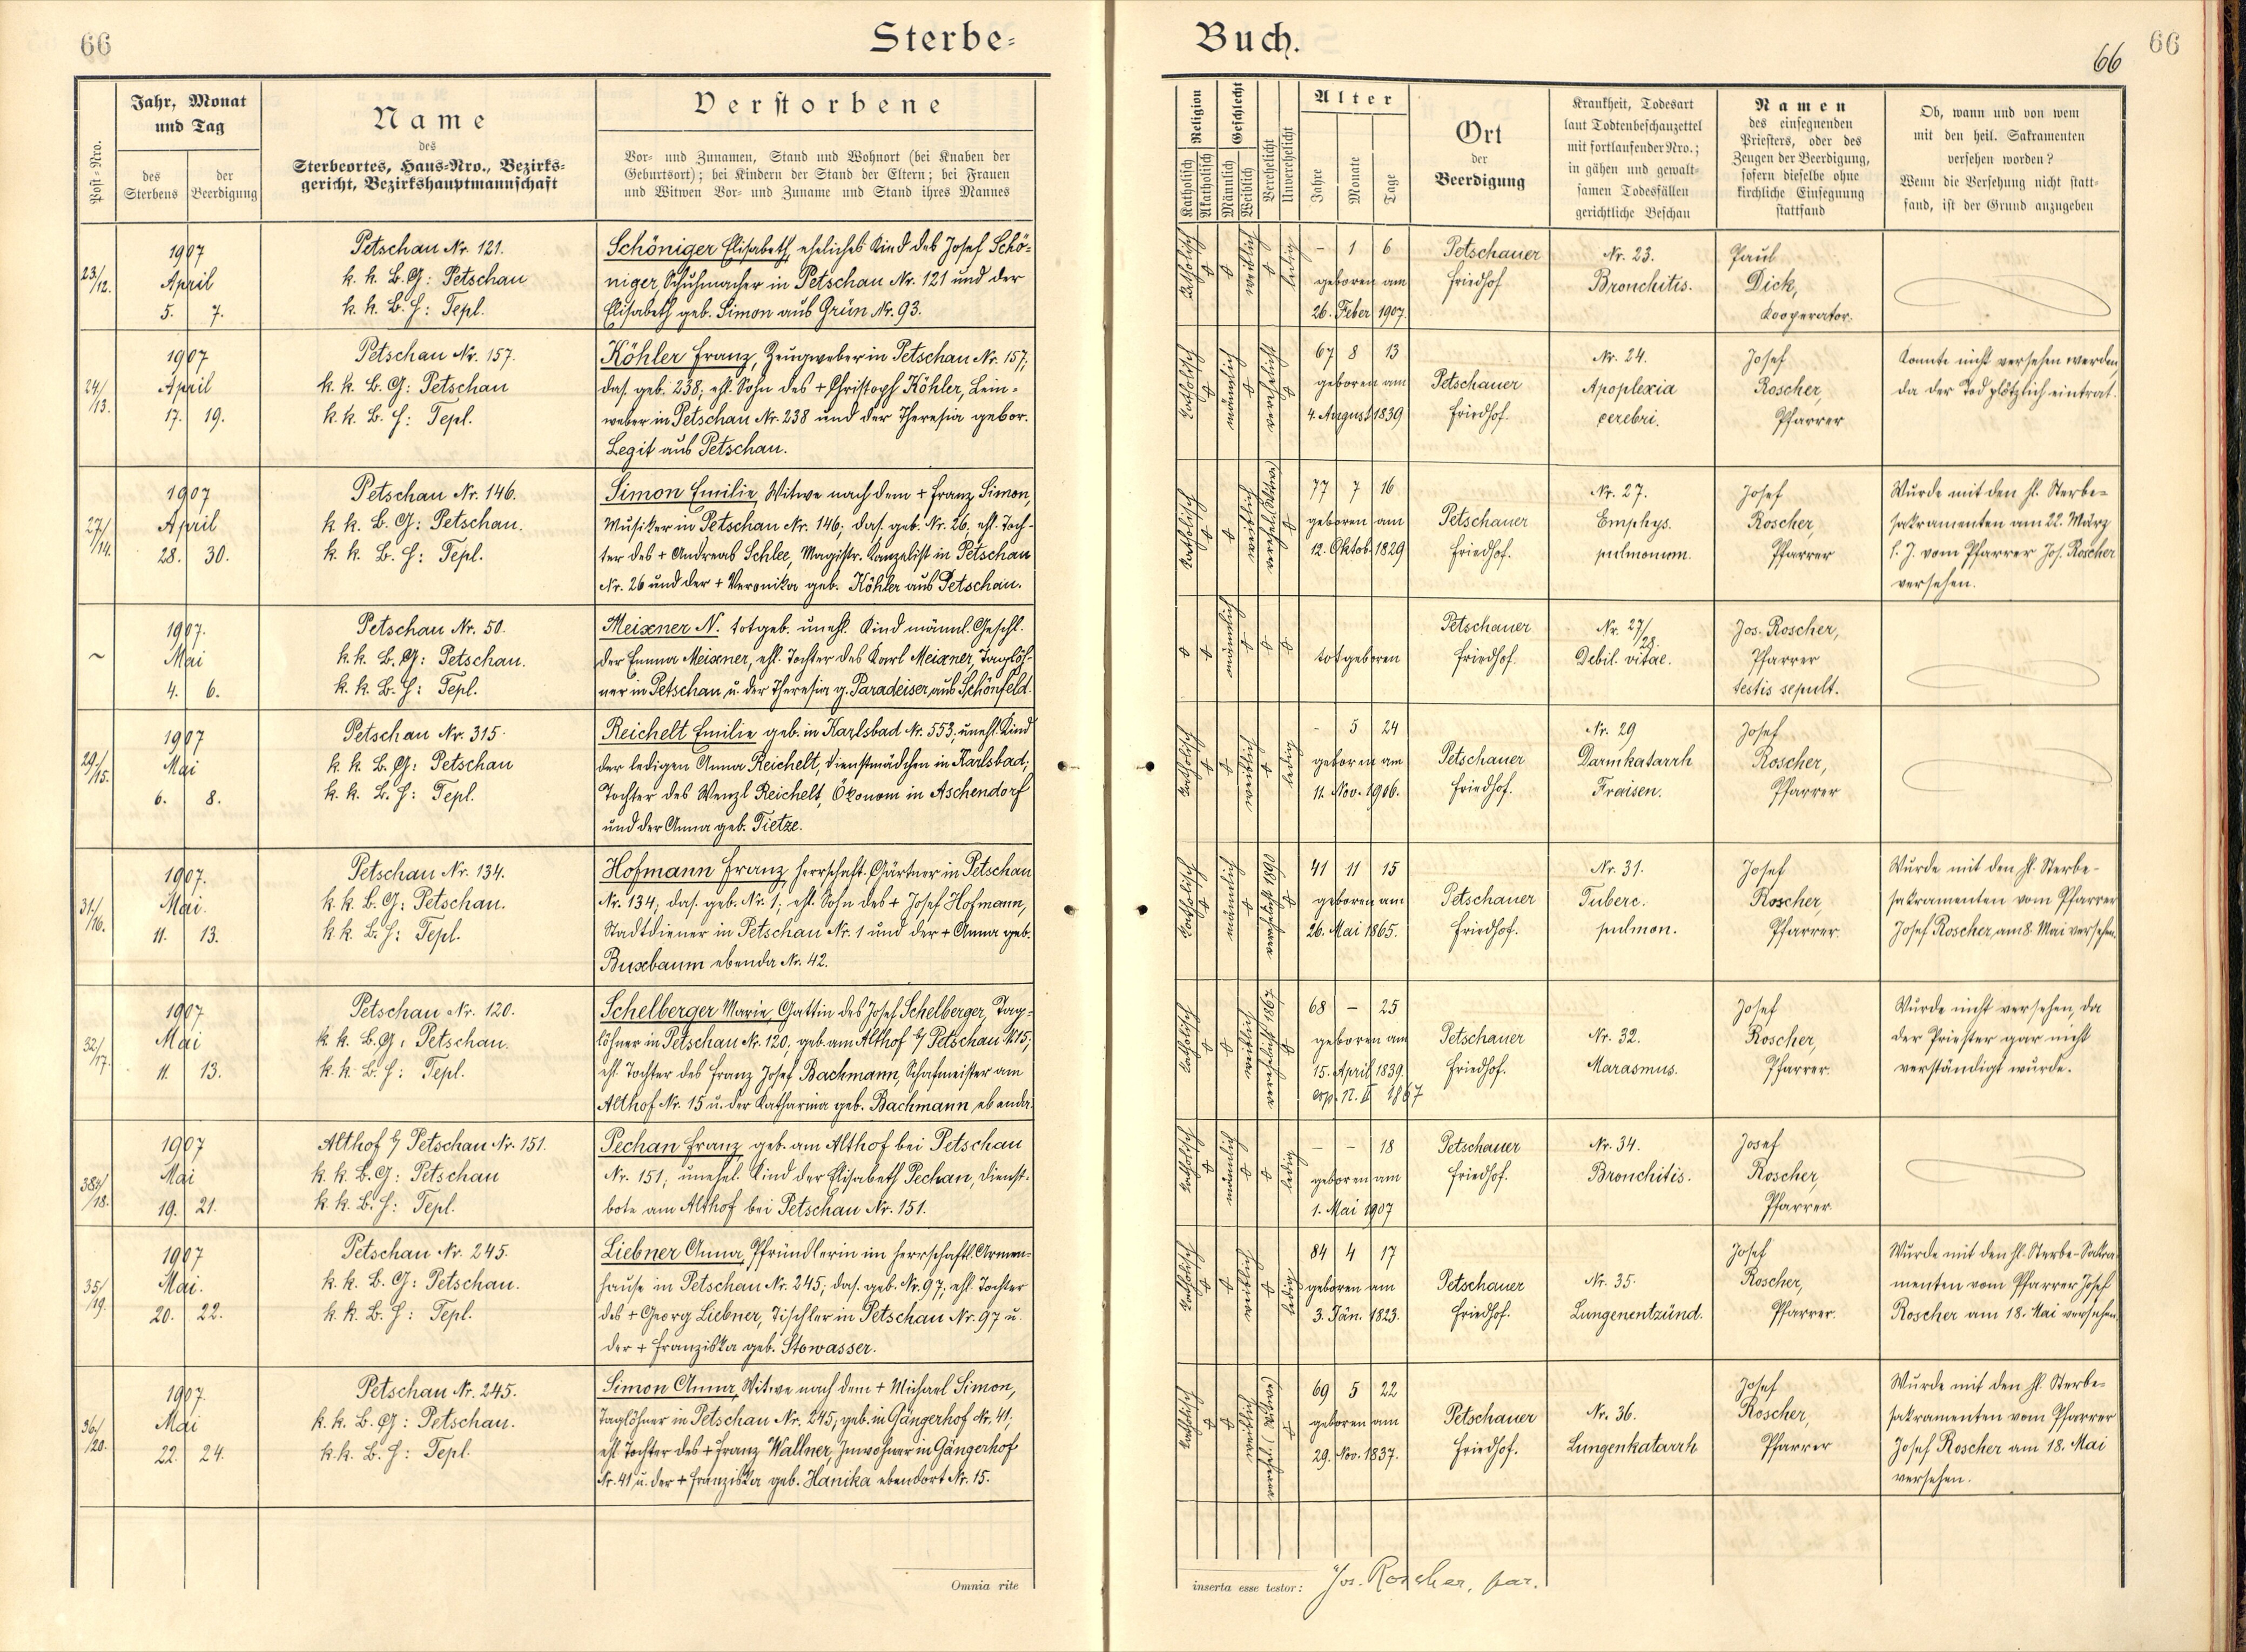 66
Sterbe=
Buch.
66
66
Post-Nro.
Jahr, Monat
und Tag
des
Sterbens
der
Beerdigung
Name
des
Sterbeortes, Haus-Nro., Bezirks-
gericht, Bezirkshauptmannschaft
Verstorbene
Vor- und Zunamen, Stand und Wohnort (bei Knaben der
Geburtsort); bei Kindern der Stand der Eltern; bei Frauen
und Witwen Vor- und Zuname und Stand ihres Mannes
Religion
Katholisch
Akatholisch
Geschlecht
Männlich
Weiblich
Verehelicht
Unverehelicht
Alter
Jahre
Monate
Tage
Ort
der
Beerdigung
Krankheit, Todesart
laut Todtenbeschauzettel
mit fortlaufender Nro.;
in gähen und gewalt-
samen Todesfällen
gerichtliche Beschau
Namen
des einsegnenden
Priesters, oder des
Zeugen der Beerdigung,
sofern dieselbe ohne
kirchliche Einsegnung
stattfand
Ob, wann und von wem
mit den heil. Sakramenten
versehen worden?
Wenn die Versehung nicht statt-
fand, ist der Grund anzugeben
23/12.
1907
April
5. 7.
Petschau Nr. 121.
k. k. B. G: Petschau
k. k. B. H: Tepl.
Schöniger Elisabeth, eheliches Kind des Josef Schö-
niger, Schuhmacher in Petschau Nr. 121 und der
Elisabeth geb. Simon aus Grün Nr. 93.
katholisch
weiblich
ledig
– 1 6
geboren am
26. Feber 1907.
Petschauer
Friedhof
Nr. 23.
Bronchitis.
Paul
Dick,
Kooperator.
24/13.
1907
April
17. 19.
Petschau Nr. 157.
k. k. B. G: Petschau
k. k. B. H: Tepl.
Köhler Franz, Zeugweber in Petschau Nr. 157;
das. geb. 238; ehl. Sohn des + Christoph Köhler, Lein-
weber in Petschau Nr. 238 und der Theresia gebor.
Legit aus Petschau.
katholisch
männlich
verehelicht
67 8 13
geboren am
4. August 1839
Petschauer
Friedhof.
Nr. 24.
Apoplexia
cerebri.
Josef
Roscher,
Pfarrer
Konnte nicht versehen werden,
da der Tod plötzlich eintrat.
27/14.
1907
April
28. 30.
Petschau Nr. 146.
k. k. B. G: Petschau.
k. k. B. H: Tepl.
Simon Emilie, Witwe nach dem + Franz Simon,
Musiker in Petschau Nr. 146; das. geb. Nr. 26, ehl. Toch-
ter des + Andreas Schlee, Magistr. Kanzelist in Petschau
Nr. 26 und der + Veronika geb. Köhler aus Petschau.
katholisch
weiblich
verehel. (Witwe)
77 7 16
geboren am
12. Oktob. 1829
Petschauer
Friedhof.
Nr. 27.
Emphys.
pulmonum.
Josef
Roscher,
Pfarrer
Wurde mit den hl. Sterbe-
sakramenten am 22. März
l. J. vom Pfarrer Jos. Roscher
versehen.
~
1907.
Mai
4. 6.
Petschau Nr. 50.
k. k. B. G: Petschau.
k. k. B. H: Tepl.
Meixner N. totgeb. unehl. Kind männl. Geschl.
der Emma Meixner, ehl. Tochter des Karl Meixner, Taglöh-
ner in Petschau, u. der Theresia g. Paradeiser aus Schönfeld.
männlich
totgeboren
Petschauer
Friedhof.
Nr. 27/28.
Debil. vitae.
Jos. Roscher,
Pfarrer
testis sepult.
29/15.
1907
Mai
6. 8.
Petschau Nr. 315.
k. k. B. G: Petschau
k. k. B. H: Tepl.
Reichelt Emilie geb. in Karlsbad Nr. 553; unehl. Kind
der ledigen Anna Reichelt, Dienstmädchen in Karlsbad;
Tochter des Wenzl Reichelt, Ökonom in Aschendorf
und der Anna geb. Tietze.
katholisch
weiblich
ledig
– 5 24
geboren am
11. Nov. 1906.
Petschauer
Friedhof.
Nr. 29
Darmkatarrh
Fraisen.
Josef
Roscher,
Pfarrer
31./16.
1907.
Mai.
11. 13.
Petschau Nr. 134.
k. k. B. G: Petschau.
k. k. B. H: Tepl.
Hofmann Franz, herrschaft. Gärtner in Petschau
Nr. 134, das. geb. Nr. 1; ehl. Sohn des + Josef Hofmann,
Stadtdiener in Petschau Nr. 1 und der + Anna geb.
Buxbaum ebenda Nr. 42.
katholisch
männlich
verehelicht 1890
41 11 15
geboren am
26. Mai 1865.
Petschauer
Friedhof.
Nr. 31.
Tuberc.
pulmon.
Josef
Roscher,
Pfarrer.
Wurde mit den hl. Sterbe-
sakramenten vom Pfarrer
Josef Roscher am 8. Mai versehen.
32/17.
1907
Mai
11. 13.
Petschau Nr. 120.
k. k. B. G: Petschau.
k. k. B. H: Tepl.
Schelberger Marie, Gattin des Josef Schelberger, Tag-
löhner in Petschau Nr. 120, geb. am Althof b/ Petschau N. 15;
ehl. Tochter des Franz Josef Bachmann, Schafmeister am
Althof Nr. 15 u. der Katharina geb. Bachmann, ebenda.
katholisch
weiblich
verehelicht 1867
68 – 25
geboren am
15. April 1839.
cop. 17. II 1867
Petschauer
Friedhof.
Nr. 32.
Marasmus.
Josef
Roscher,
Pfarrer.
Wurde nicht versehen, da
der Priester gar nicht
verständigt wurde.
34/18.
1907
Mai
19. 21.
Althof b/ Petschau Nr. 151.
k. k. B. G: Petschau
k. k. B. H: Tepl.
Pechan Franz geb. am Althof bei Petschau
Nr. 151; unehel. Kind der Elisabeth Pechan, Dienst-
bote am Althof bei Petschau Nr. 151.
katholisch
männlich
ledig
– – 18
geboren am
1. Mai 1907
Petschauer
Friedhof.
Nr. 34.
Bronchitis.
Josef
Roscher,
Pfarrer.
35/19.
1907
Mai.
20. 22.
Petschau Nr. 245.
k. k. B. G: Petschau.
k. k. B. H: Tepl.
Liebner Anna, Pfründlerin im herrschaftl. Armen-
hause in Petschau Nr. 245; das. geb. Nr. 97; ehl. Tochter
des + Georg Liebner, Tischler in Petschau Nr. 97 u.
der + Franziska geb. Stowasser.
katholisch
weiblich
ledig
84 4 17
geboren am
3. Jän. 1823.
Petschauer
Friedhof.
Nr. 35.
Lungenentzünd.
Josef
Roscher,
Pfarrer.
Wurde mit den hl. Sterbe-Sakra-
menten vom Pfarrer Josef
Roscher am 18. Mai versehen.
36/20.
1907.
Mai
22. 24.
Petschau Nr. 245.
k. k. B. G: Petschau.
k. k. B. H: Tepl.
Simon Anna, Witwe nach dem + Michael Simon,
Taglöhner in Petschau Nr. 245; geb. in Gängerhof Nr. 41;
ehl. Tochter des + Franz Wallner, Inwohner in Gängerhof
Nr. 41 u. der + Franziska geb. Hanika ebendort Nr. 15.
katholisch
weiblich
verehel. (Witwe)
69 5 22
geboren am
29. Nov. 1837.
Petschauer
Friedhof.
Nr. 36.
Lungenkatarrh
Josef
Roscher,
Pfarrer
Wurde mit den hl. Sterbe-
sakramenten vom Pfarrer
Josef Roscher am 18. Mai
versehen.
Omnia rite
inserta esse testor: Jos. Roscher, par.